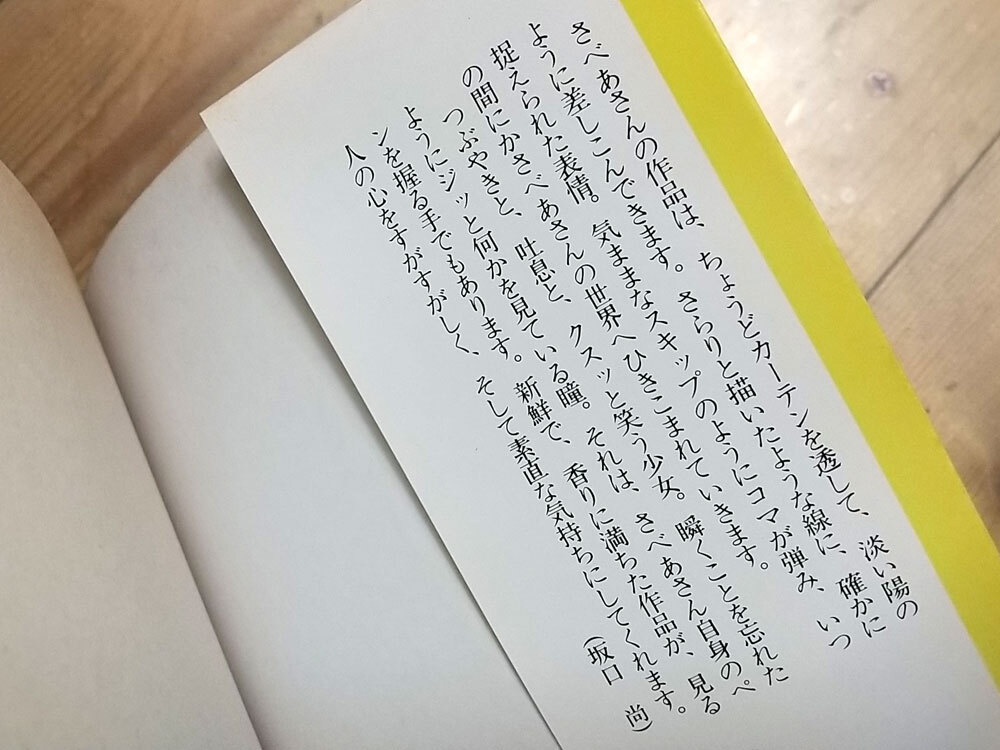 さべあさんの作品は、ちょうどカーテンを透して、淡い陽の
ように差しこんできます。さらりと描いたような線に、確かに
捉えられた表情。気ままなスキップのようにコマが弾み、いつ
の間にかさべあさんの世界へひきこまれていきます。
つぶやきと、吐息と、クスッと笑う少女。瞬くことを忘れた
ようにジッと何かを見ている瞳。それは、さべあさん自身のペ
ンを握る手でもあります。新鮮で、香りに満ちた作品が、見る
人の心をすがすがしく、そして素直な気持ちにしてくれます。
（坂口　尚）